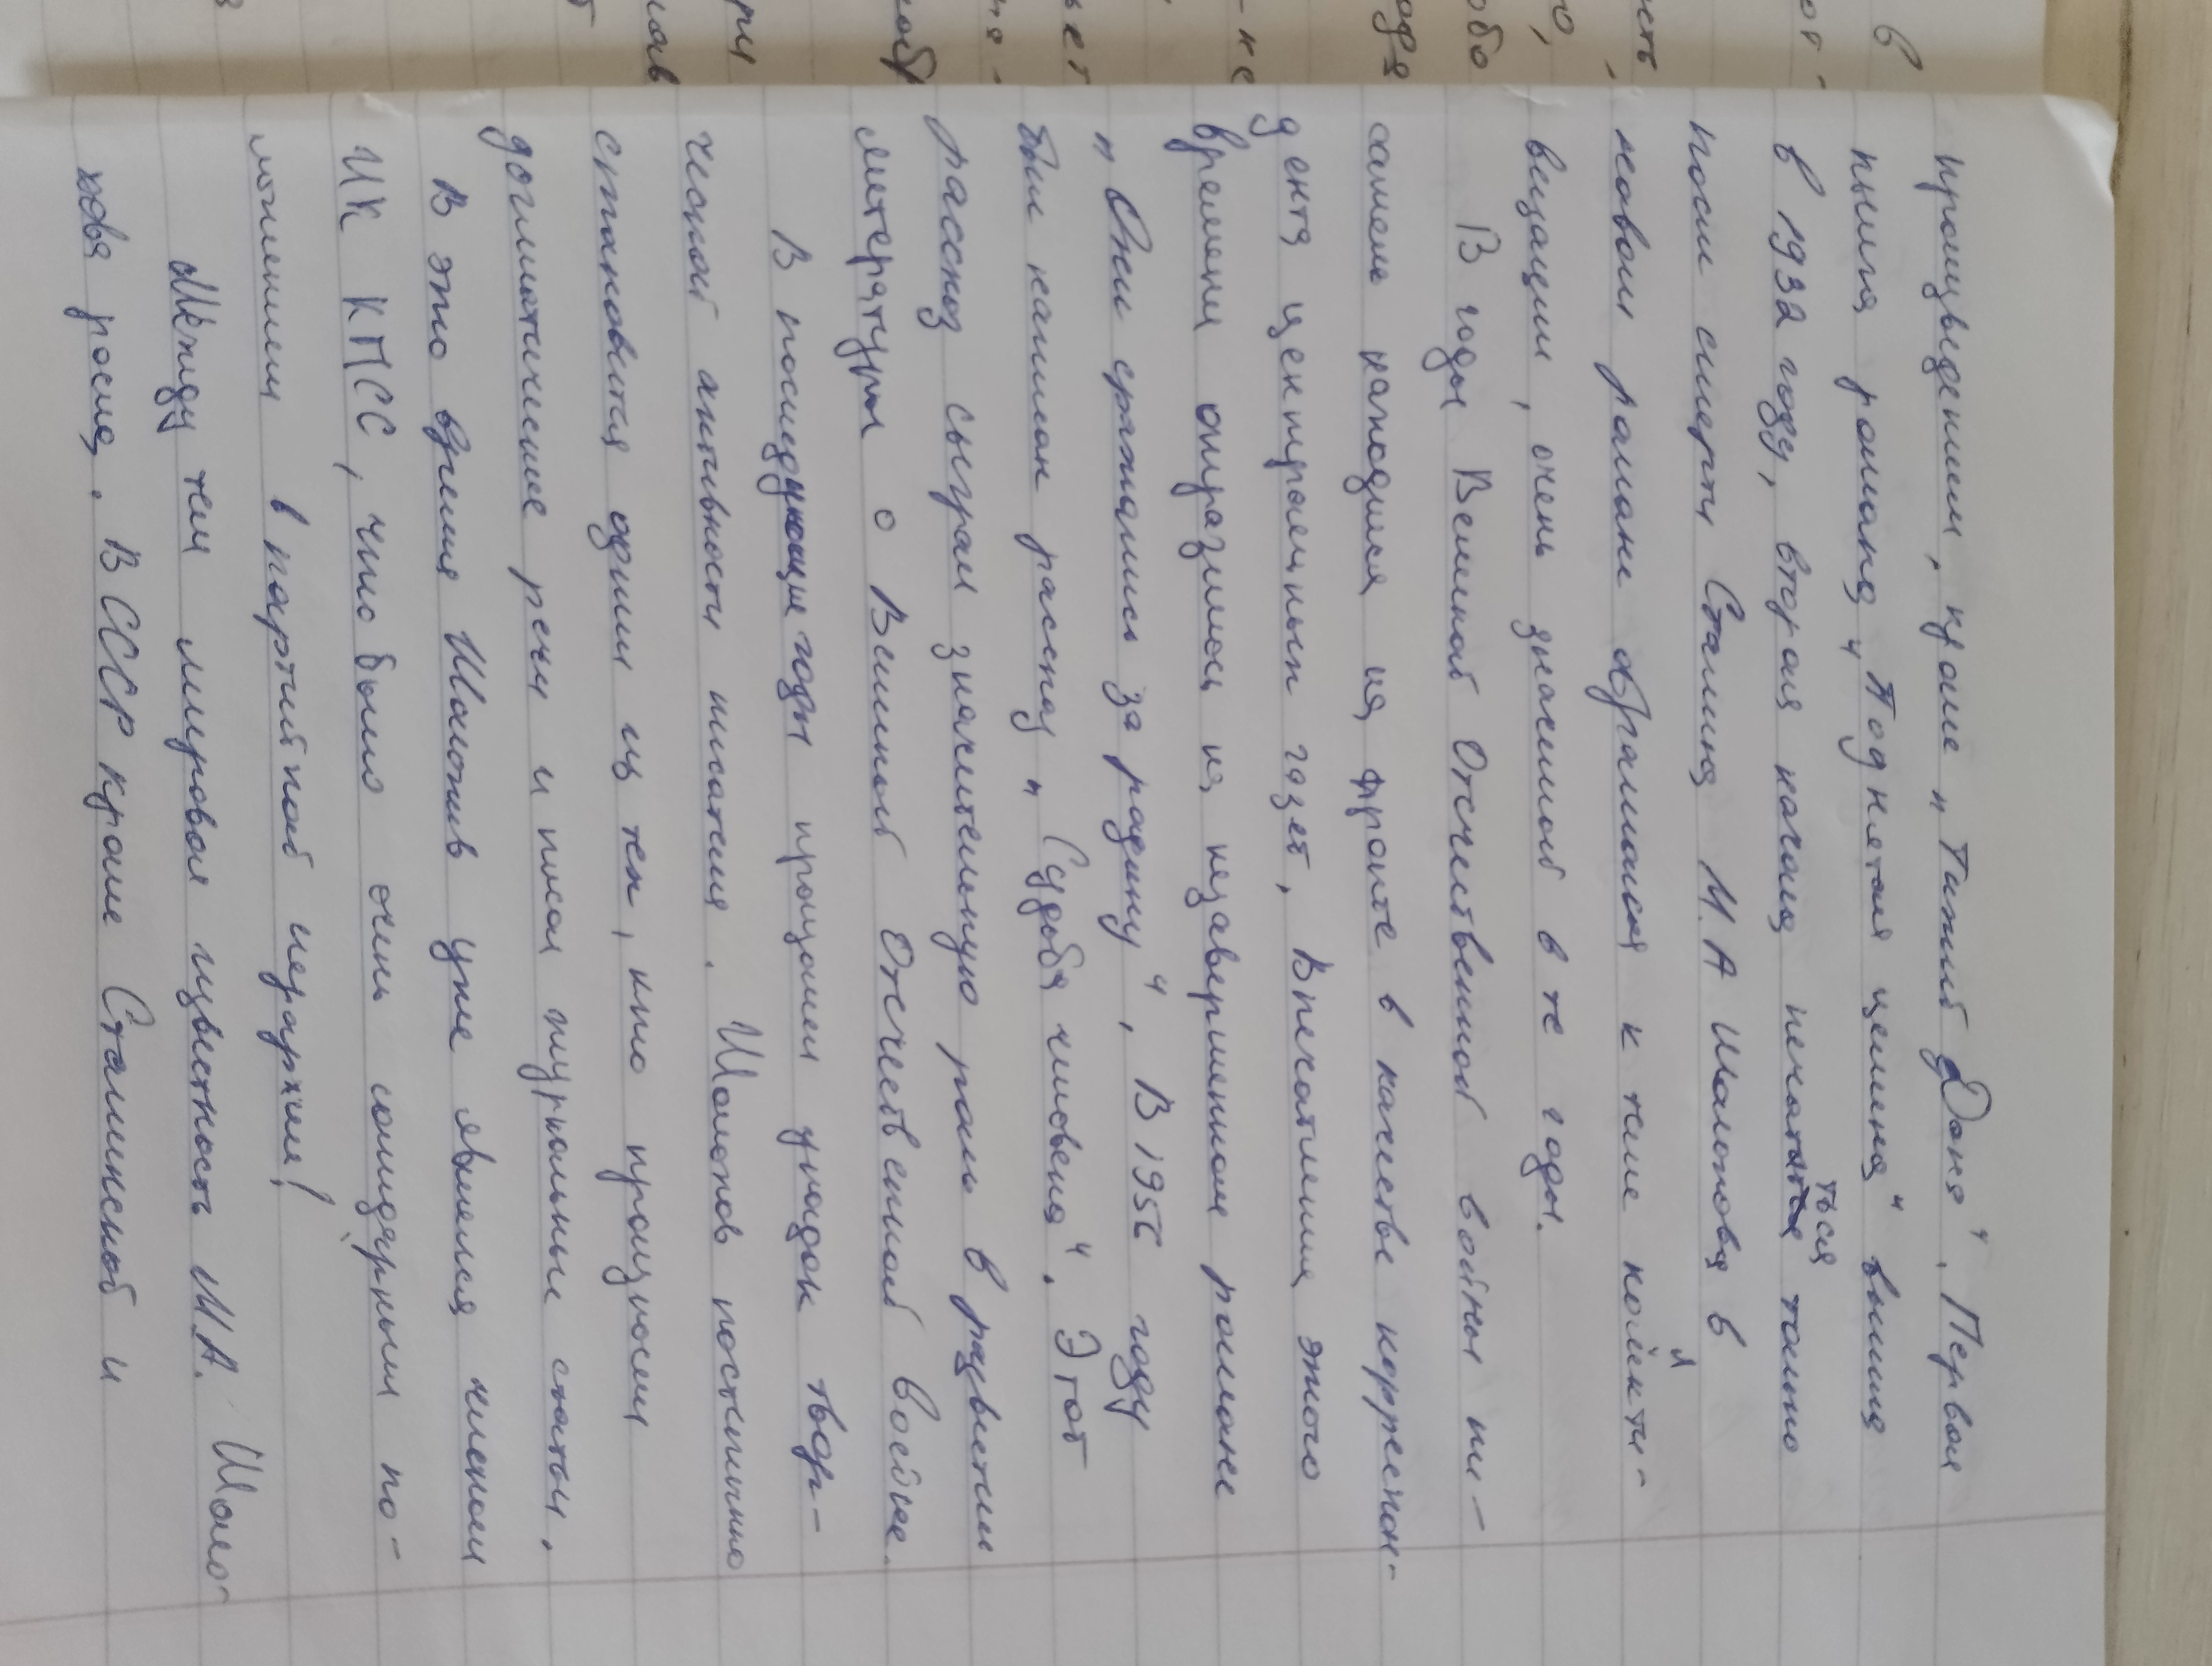 произведением, кроме „Тихий Дона". Первая
книга романа „Поднятая целина" вышла
в 1932 году, вторая начала печататься только
после смерти Сталина М.А Шолохова в
новом романе обратился к теме коллекти-
визации, очень значимой в те годы.
В годы Великой Отечественной войны пи-
сатель находился на фронте в качестве корреспон-
дента центральных газет. Впечатления этого
времени отразились в незавершенном романе
„Они сражались за родину". В 1956 году
был написан рассказ „Судьба человека". Этот
рассказ сыграл значительную роль в развитии
литературы о Великой Отечественной войне.
В последующие годы произошел упадок твор-
ческой активности писателя. Шолохов постепенно
становится одним из тех, кто произносил
догматические речи и писал журнальные статьи.
В это время Шолохов уже являлся членом
ЦК КПСС, что было очень солидарным по-
ложением в партийной иерархии!
Между тем мировая известность М.А. Шоло-
хова росла. В СССР кроме Сталинской и